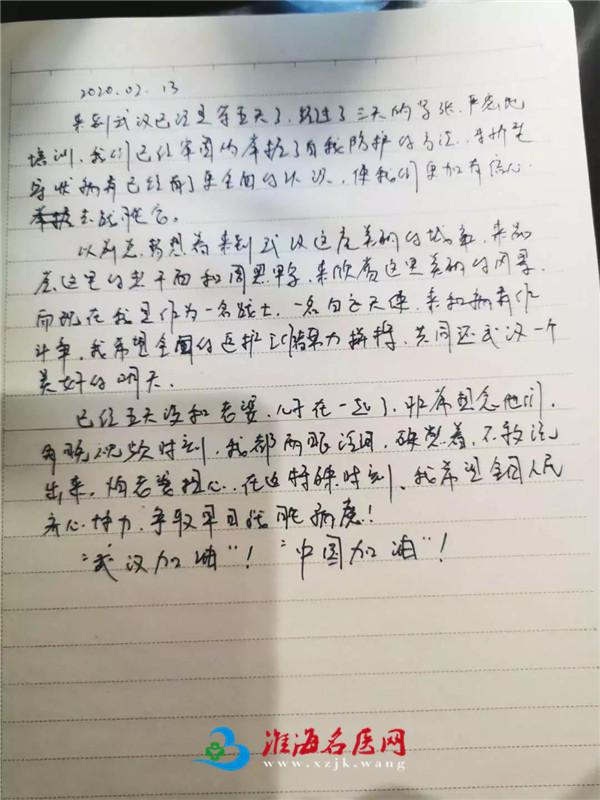 2020.02.13
来到武汉已经是第五天了,经过了三天的紧张、严密地
培训,我们已经牢固的掌握了自我防护的方法,对新型
冠状病毒已经有了更全面的认识,使我们更加有信心
去战胜它。
以前总梦想着来到武汉这座美丽的城市,来品
尝这里的热干面和周黑鸭,来欣赏这里美丽的风景,
而现在我是作为一名战士,一名白衣天使,来和病毒作
斗争,我希望全国的医护工作者努力拼搏,共同还武汉一个
美好的明天。
已经五天没和老婆、儿子在一起了,非常想念他们,
每晚视频时刻,我都两眼泪河,硬憋着,不敢流
出来,怕老婆担心。在这特殊时刻,我希望全国人民
齐心协力,争取早日战胜病魔!
“武汉加油”!“中国加油”!
淮海名医网
www.xzjk.wang